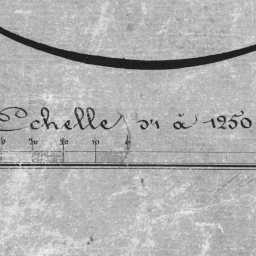 Echelle d'1 à 1250
30 20 10 0